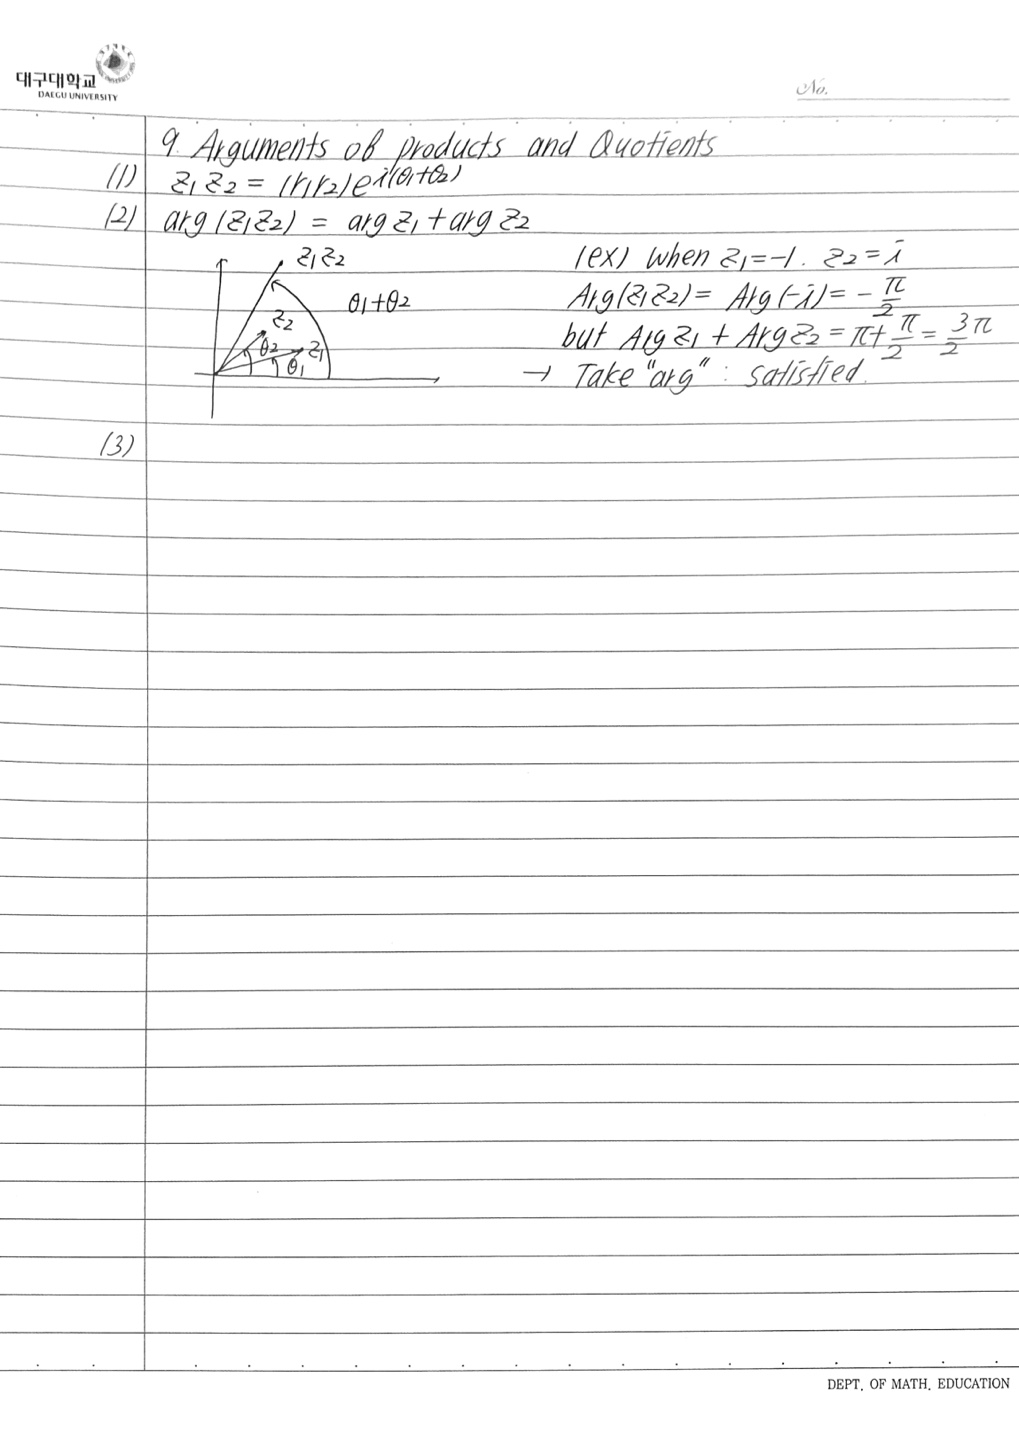 대구대학교
DAEGU UNIVERSITY
No.
9. Arguments of products and Quotients
(1) z₁z₂ = (r₁r₂)e^i(θ₁+θ₂)
(2) arg(z₁z₂) = arg z₁ + arg z₂
z₁z₂
θ₁+θ₂
z₂
θ₂
z₁
θ₁
(ex) when z₁=-1. z₂=i
Arg(z₁z₂) = Arg(-i) = -π/2
but Arg z₁ + Arg z₂ = π+π/2 = 3/2 π
→ Take "arg" : satisfied.
(3)
DEPT. OF MATH. EDUCATION